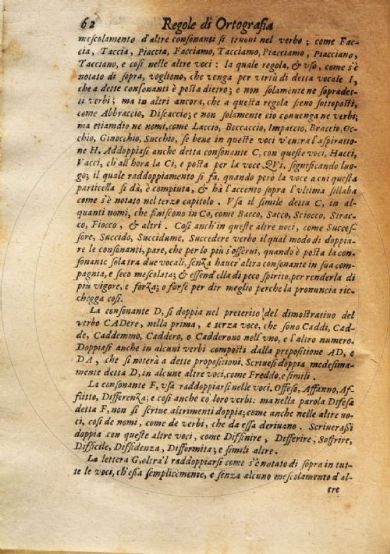 62 Regole di Ortografia
mescolamento d'altre consonanti si truoui nel verbo; come Fac-
cia, Taccia, Piaccia, Facciamo, Tacciamo, Piacciamo, Facciano,
Tacciano, e così nelle altre voci: la quale regola, & vso, come s'è
notato di sopra, vogliono, che venga per virtù di desta vocale I,
che a dette consonanti è posta dietro; e non solamente ne sopradet-
ti verbi; ma in altri ancora, che a questa regola sieno sottoposti,
come Abbraccio, Discaccio; e non solamente ciò conuenga ne verbi,
ma etiamdio ne nomi, come Laccio, Boccaccio, Impaccio, Braccio, Oc-
chio, Ginocchio, Succhio, se bene in queste voci v'entra l'aspiratio-
ne H. Addoppiasi anche detta consonante C, con queste voci, Hacci,
Vacci, ch'all'hora la Ci, e posta per la voce Qvi, significando luo-
go; il quale raddoppiamento si fà, quando però la voce a cui questa
particella si dà, è compiuta, & hà l'accento sopra l'vltima sillaba
come s'è notato nel terzo capitolo. Vsa il simile desta C, in al-
quanti nomi, che finiscono in Co, come Bacco, Sacco, Sciocco, Strac-
co, Fiocco, & altri. Così anch'in queste altre voci, come Succes-
sore, Succido, Succidume, Succedere verbo il qual modo di doppia-
re le consonanti, pare, che per lo più s'osserui, quando è posta la con-
sonante sola tra due vocali, senza hauer altra consonante in sua com-
pagnia, e seco mescolata; & essend'ella di poco spirito, per renderla di
più vigore, e forza; o forse per dir meglio perche la pronuncia ric-
chegga così.
La consonante D, si doppia nel preterito del dimostratiuo del
verbo CADere, nella prima, e terza voce, che sono Caddi, Cad-
de, Caddemmo, Caddero, o Cadderono nell'vno, e l'altro numero.
Doppiasi anche in alcuni verbi composti dalla prepositione AD, e
DA, che si noterà a dette propositioni. Scriuesi doppia medesima-
mente detta D, in alcune altre voci, come Freddo, e simili.
La consonante F, vsa raddoppiarsi nelle voci, Offesa, Affanno, Af-
flitto, Differenza; e così anche co'loro verbi: ma nella parola Difesa
detta F, non si scriue altrimenti doppia; come anche nelle altre uo-
ci, così de nomi, come de verbi, che da essa deriuano. Scriuerassi
doppia con queste altre voci, come Diffinire, Differire, Soffrire,
Difficile, Diffidenza, Difformita; e simili altre.
La lettera G, oltra'l raddoppiarsi come s'è notato di sopra in tut-
te le voci, ch'essa semplicemente, e senza alcuno mescolamento d'al-
tre